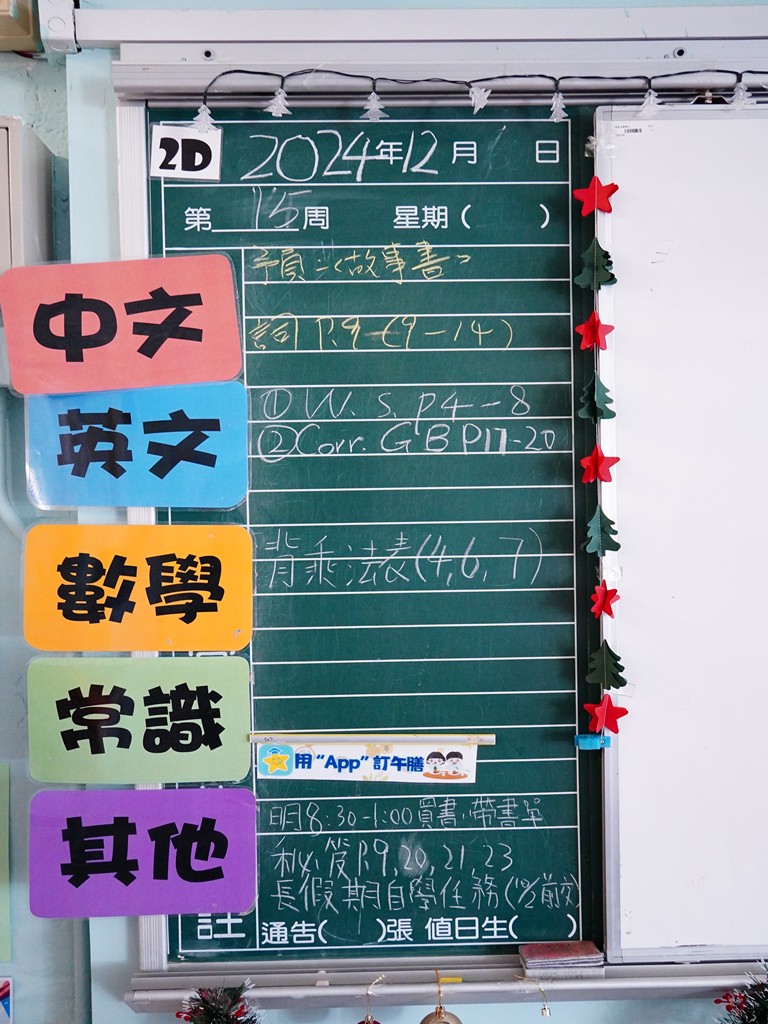 2D 2024年12月 日
第 15 周 星期( )
中文
預:<故事書>
詞 P.9 (9-14)
英文
① W. S. p4-8
② Corr. GB P17-20
數學
背乘法表(4, 6, 7)
常識
用“App”訂午膳
其他
明8:30-1:00買書,帶書單
秘笈P.9, 20, 21, 23
長假期自學任務( 前交)
註 通告( )張 值日生( )